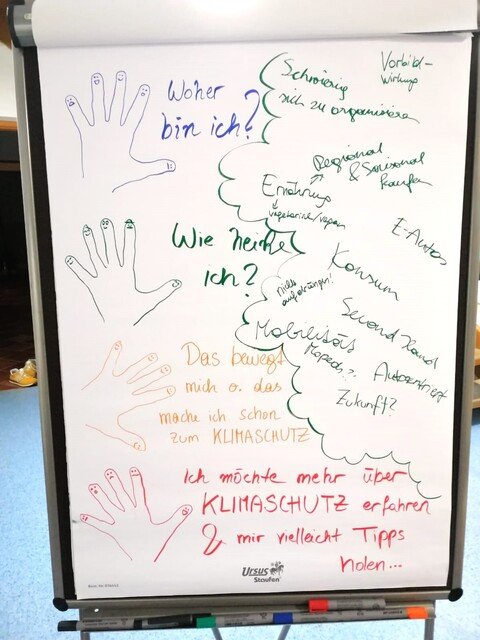 Woher
bin ich?
Wie heiße
ich?
Das bewegt
mich o. das
mache ich schon
zum KLIMASCHUTZ
Ich möchte mehr über
KLIMASCHUTZ erfahren
& mir vielleicht Tipps
holen...
Schwierig
sich zu organisieren
Vorbild-
wirkung
Regional
& Saisonal
kaufen
Ernährung
vegetarisch/vegan
E-Autos
Konsum
nichts
aufdrängen!
Second Hand
Mobilität
Mopeds?
Zukunft?
Ursus
Staufen